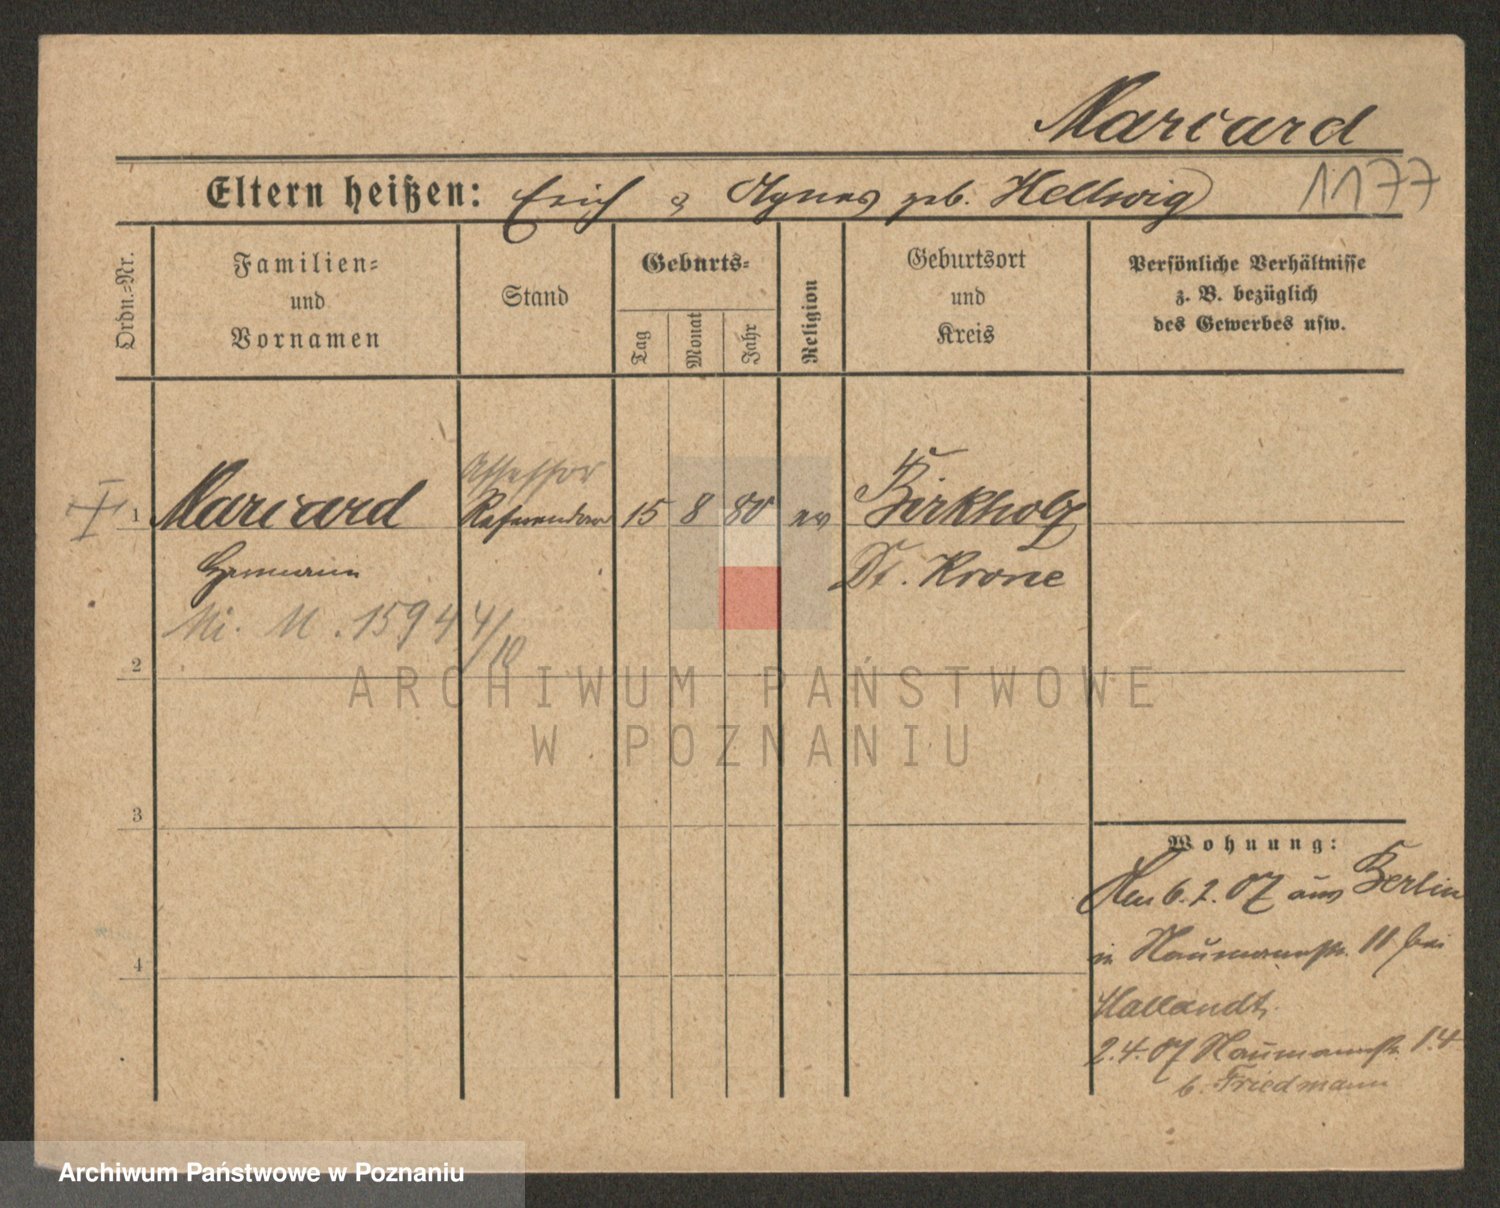 Marcard
Eltern heißen: Erich & Agnes geb. Hellwig
1177
Ordn.-Nr.
Familien-
und
Vornamen
Stand
Geburts-
Tag
Monat
Jahr
Religion
Geburtsort
und
Kreis
Persönliche Verhältnisse
z. B. bezüglich
des Gewerbes usw.
Assessor
1 Marcard Referendar 15 8 80 ev Birkholz
Hermann Dt. Krone
Mi. M. 1594 4/10
2
ARCHIWUM PAŃSTWOWE
W POZNANIU
3
Wohnung:
6.2.07 aus Berlin
in Naumannstr. 11 bei
4
Hallandt
2.4.07 Naumannstr. 14
b. Friedmann
Archiwum Państwowe w Poznaniu